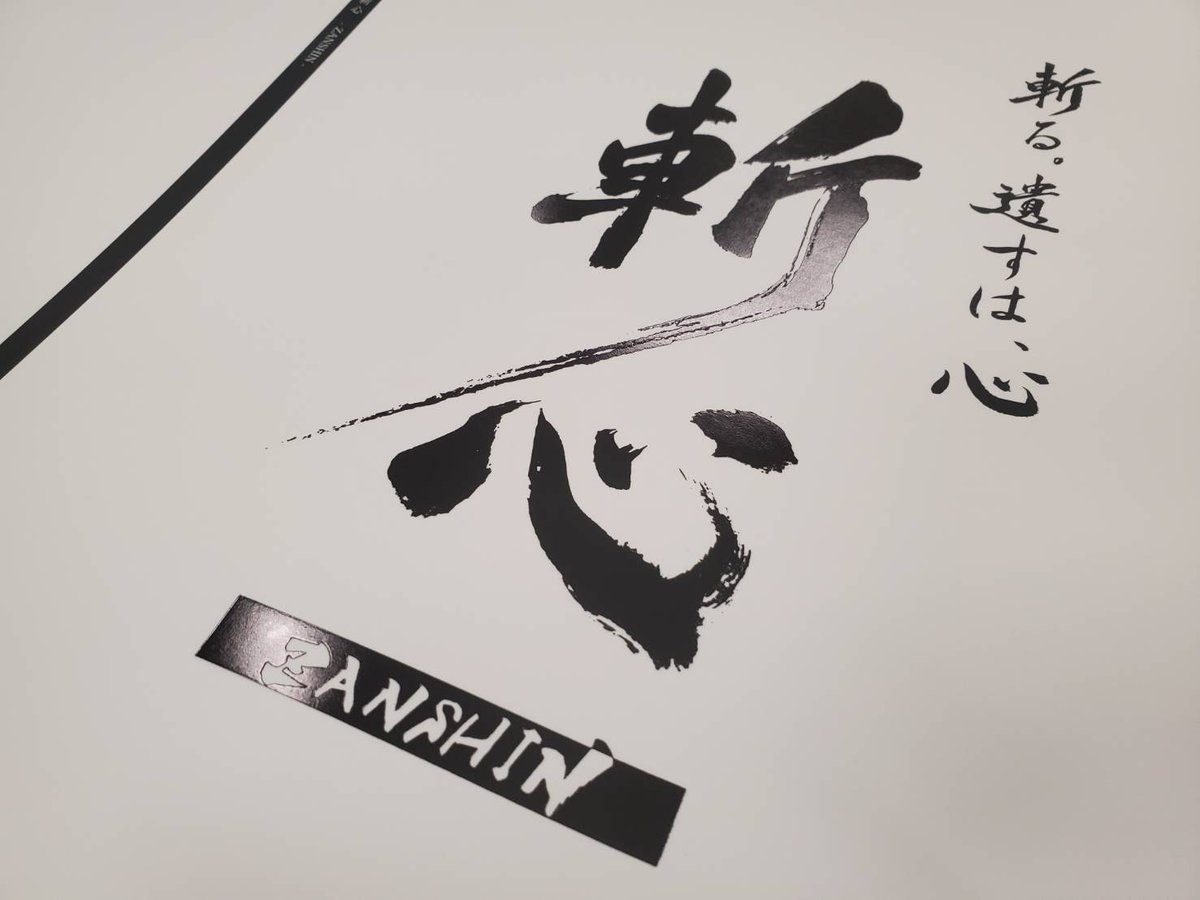 斬る。遺すは、心
斬心
ZANSHIN
心 . ZANSHIN .